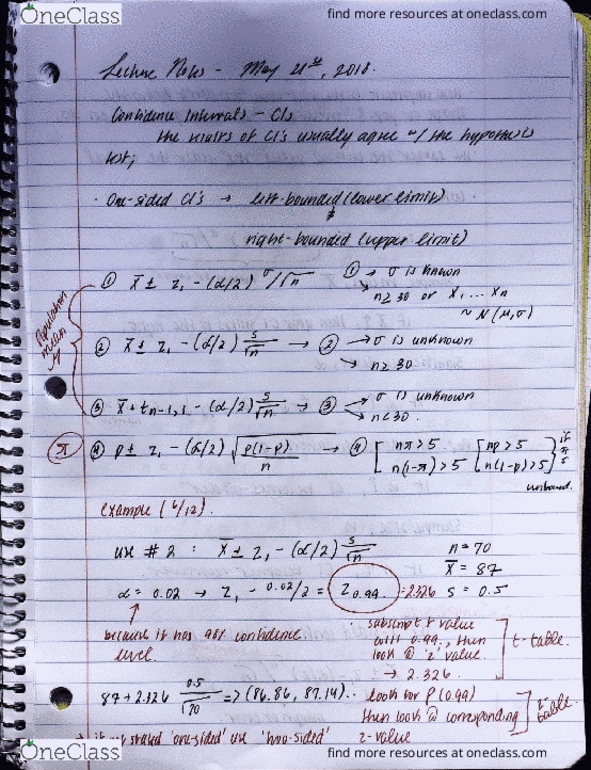 OneClass
find more resources at oneclass.com
Lecture Notes - May 21st, 2018.
Confidence Intervals - CIs
the results of CI's usually agree w/ the hypothesis
test;
· One-sided CI's → left-bounded (lower limit)
&
right-bounded (upper limit)
① x̄ ± z₁ - (α/2) σ/√n ① → σ is known
→ n ≥ 30 or X₁ ... Xn
~ N(μ,σ)
Population mean
② x̄ ± z₁ - (α/2) s/√n → ② → σ is unknown
→ n ≥ 30
③ x̄ ± t n-1, 1 - (α/2) s/√n → ③ → σ is unknown
→ n < 30.
π ④ p ± z₁ - (α/2) √p(1-p)/n → ④ [ nπ > 5 [ np > 5
n(1-π) > 5 n(1-p) > 5 ] } if π is
unbound.
example (6/12).
use # 2 : x̄ ± z₁ - (α/2) s/√n n = 70
x̄ = 87
α = 0.02 → z₁ - 0.02/2 = z0.99 = 2.326 s = 0.5
because it has 98% confidence
level.
· subscript t value
until 0.99, then
look @ 'z' value.
→ 2.326.
t-table.
87 ± 2.326 0.5/√70 => (86.86, 87.14).. look for P(0.99)
then look @ corresponding
z-value
z-table.
→ if not stated 'one-sided' use 'two-sided'
OneClass
find more resources at oneclass.com